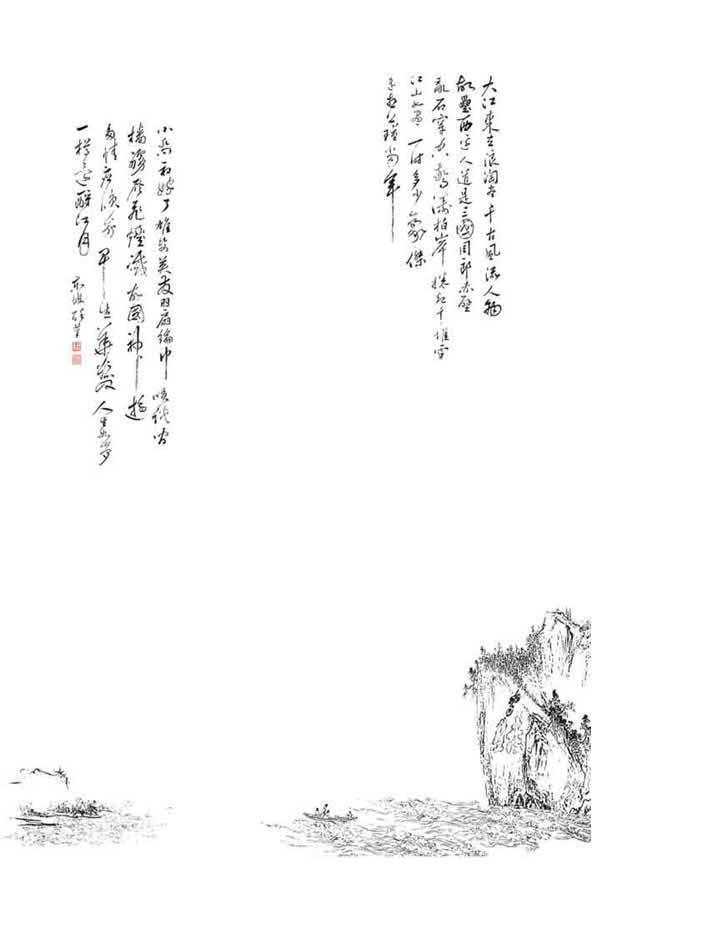 大江東去浪淘盡千古風流人物
故壘西邊人道是三國周郎赤壁
亂石穿空驚濤拍岸捲起千堆雪
江山如畫一時多少豪傑
遙想公瑾當年
小喬初嫁了雄姿英發羽扇綸巾咲談間
檣艣灰飛煙滅故國神遊
多情應咲我早生華髮人生如夢
一樽還酹江月
東坡